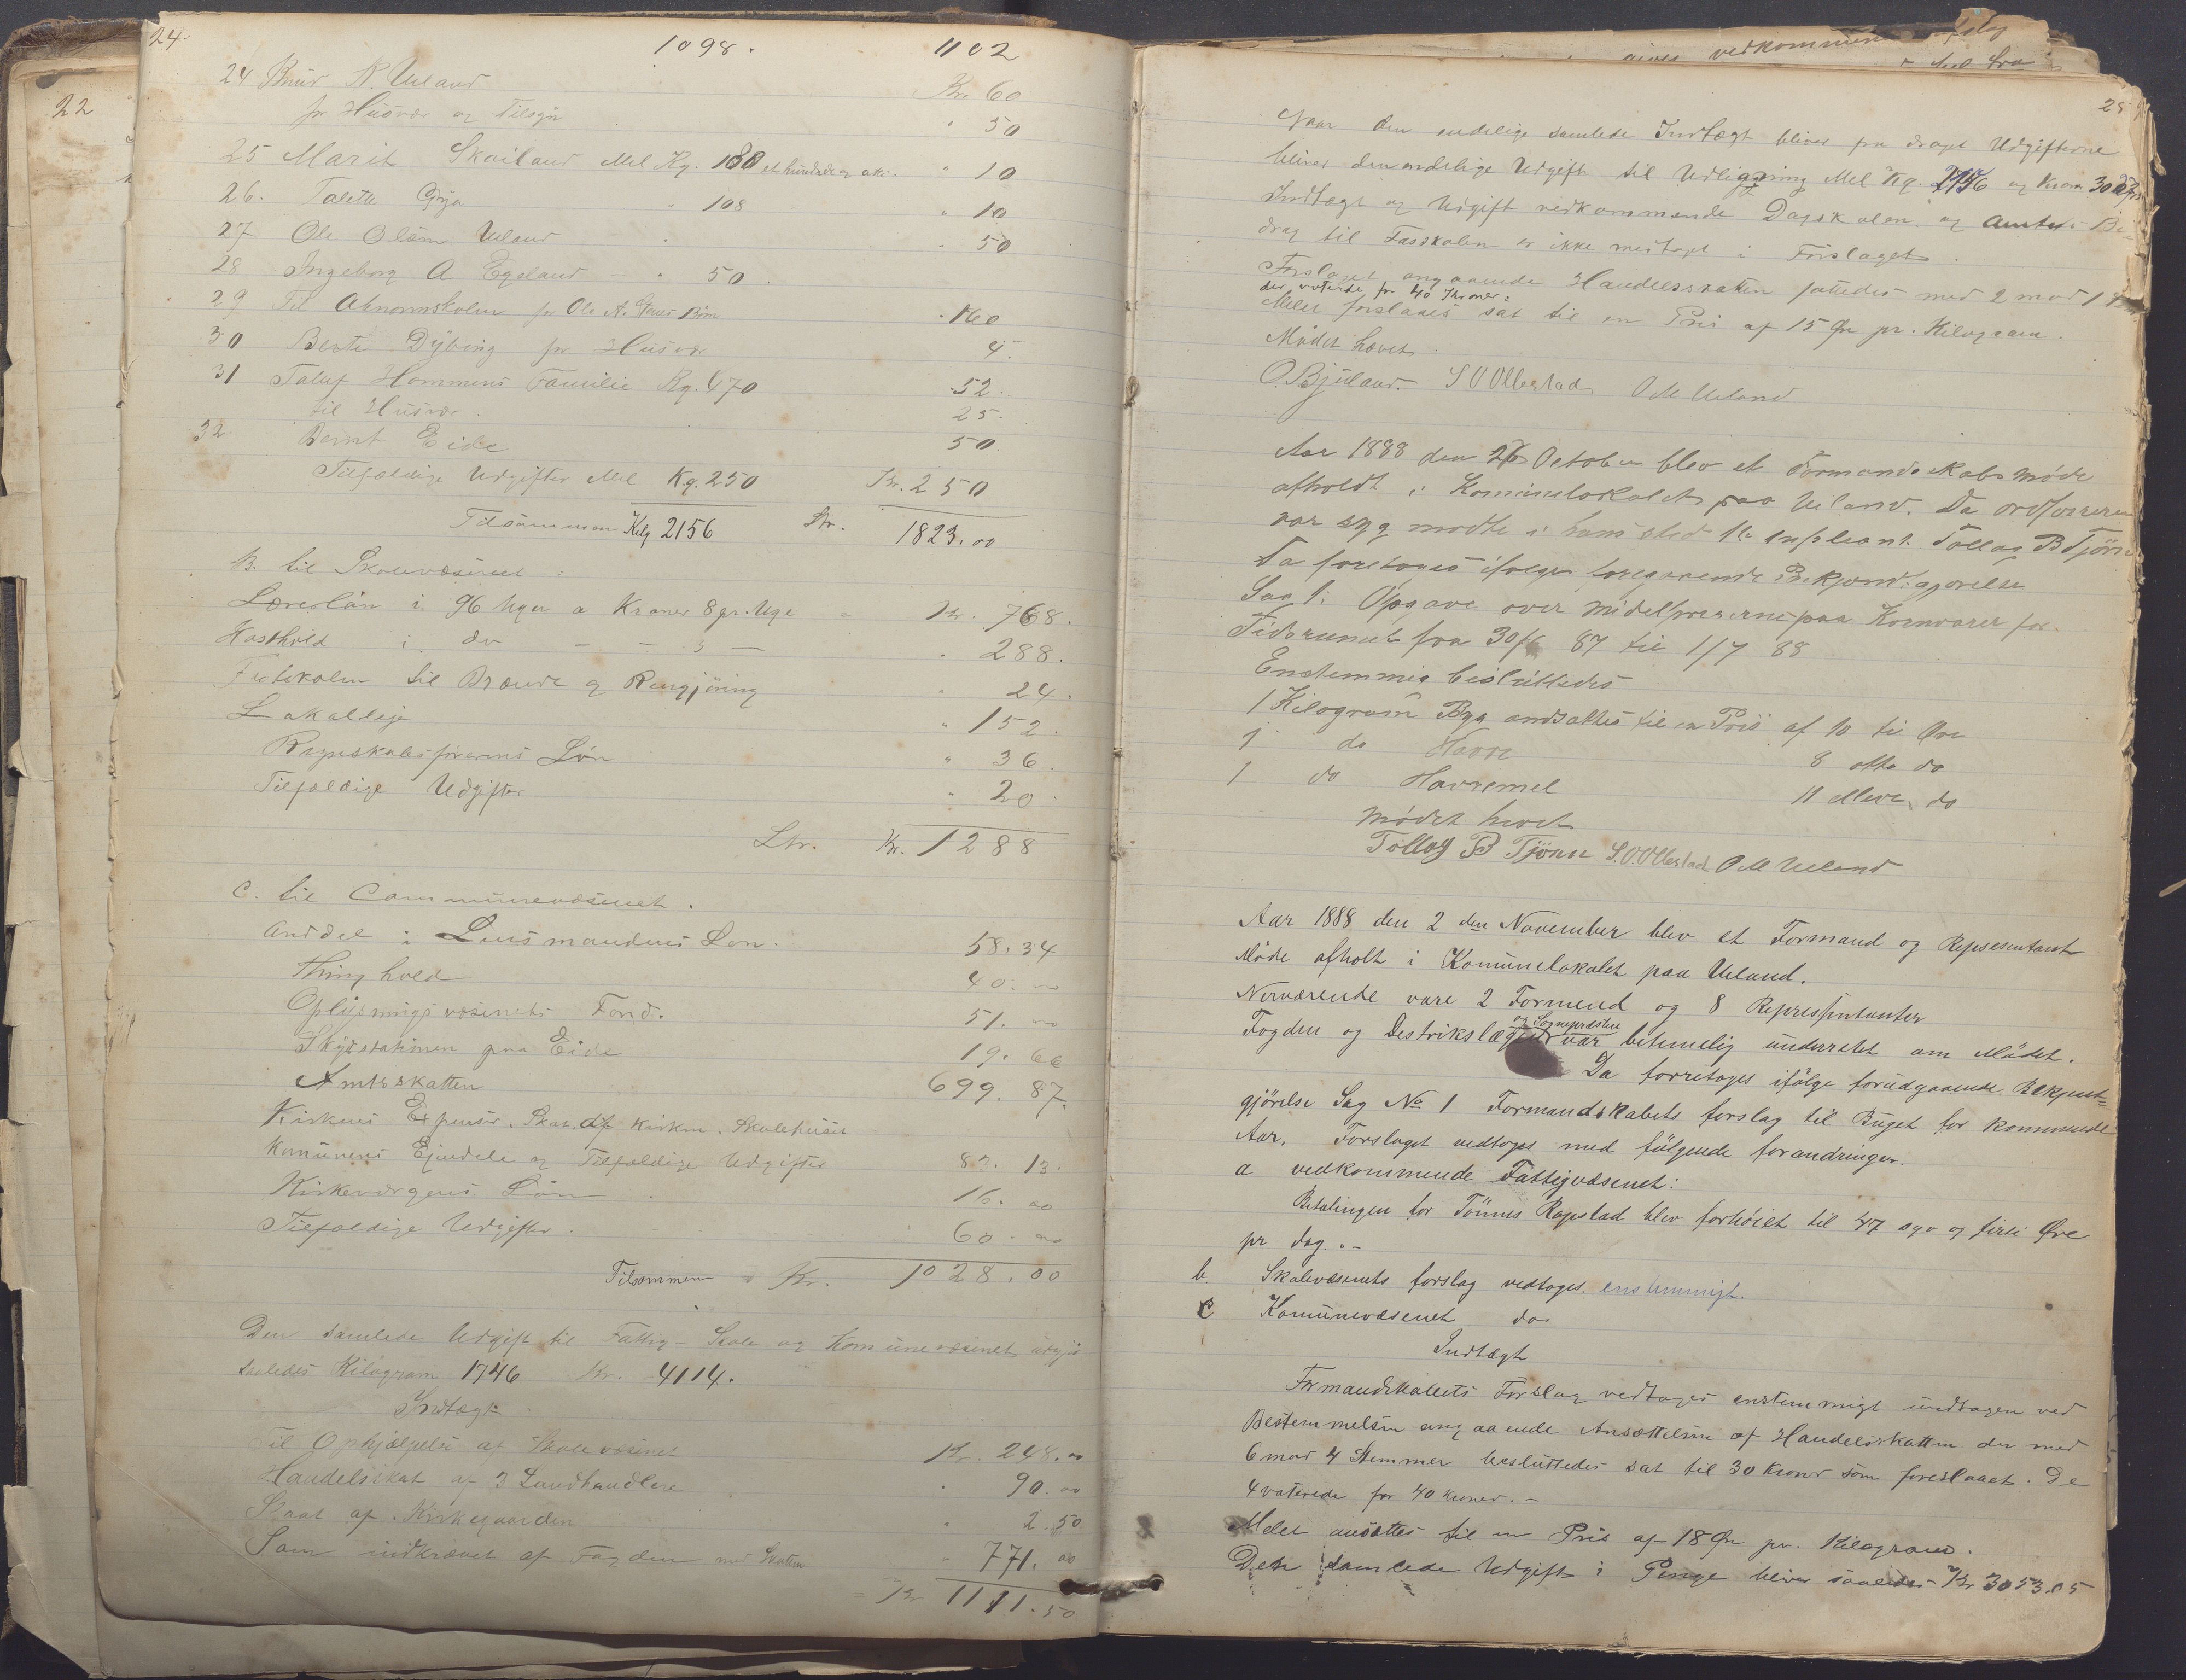 24.
1098. 1102
24 Knud N. Ueland Kr. 60
for Husvær og Tilsyn " 50
25 Marit Skailand Mel Kg. 180 et hundrede og otti. " 10
26. Talette Gya " 108 " 10
27 Ole Olsen Ueland " 50
28 Ingeborg A Egeland - " 50
29 Til Abnormskolen for Ole A. Børn 160
30 Berte Dybing for Husvær 4.
31 Taluf Hommens Familie Kg. 470 52.
til Husvær. 25.
32. Bernt Eide 50.
Tilfældige Udgifter Mel Kg. 250 Kr. 250
Tilsammen Kilg 2156 Kr. 1823.00
B. til Skolevæsenet
Lærerløn i 96 Uger a Kroner 8 pr. Uge Kr. 768.
Kosthold i do — — 3 — " 288.
Fastskolen til Brænde og Rengjøring " 24.
Lokalleje " 152.
Regnskabsførerens Løn " 36.
Tilfældige Udgifter " 20.
Ltr. Kr. 1288
C. til Communevæsenet.
Anddel i Lensmandens Løn. 58.34
Thinghold 40.00
Oplysningsvæsenets Fond. 51.00
Skydsstationen paa Eide 19.66
Amtsskatten 699.87.
Kirkens Expenser, Skat af Kirken, Skolehuset
Komünens Ejendele og Tilfældige Udgifter 83.13.
Kirkeværgens Løn 16.00
Tilfældige Udgifter. 60.00
Tilsammen Kr. 1028.00
Den samlede Udgift til Fattig- Skole og Komünevæsenet udgjør
saaledes Kilogram 1746 Kr. 4114.
Indtægt
Til Ophjælpelse af Skolevæsenet Kr. 248.00
Handelsskat af 3 Landhandlere " 90.00
Skat af Kirkegaarden " 2.50
Som indkrævet af Fogden med Skatten " 771.00
Kr 1111.50
22
25
Naar den endelige samlede Indtægt bliver fra draget Udgifterne
bliver den endelige Udgift til Udligning Mel Kg. 2156 og Kroner
Indtægt og Udgift vedkommende Dagskolen og Amtets Bi-
drag til Fasskolen er ikke medtaget i Forslaget.
Forslaget angaaende Handelsskatten fattedes med 2 mod 1
der voterede for 40 Kroner.
Melet forslaaes sat til en Pris af 15 Øre pr. Kilogram.
Mødet hævet.
O. Bjuland. S O Ollestad O M Ueland
Aar 1888 den 26 October blev et Formandsskabs møde
afholdt i Komünelokalet paa Ueland. Da ordføreren
var syg mødte i hans sted 1te supleant Tollag B Tjörn
Da foretoges ifølge foregaaende Bekjendtgjørelse
Sag 1. Opgave over middelpriserne paa Kornvarer for
Tidsrumet fra 30/6 87 til 1/7 88
Enstemmig besluttedes
1 Kilogram Byg andsattes til en Pris af 10 ti Øre
1 do Havre 8 otte do
1 do Havremel 11 elleve do
mødet hevet
Tollag B Tjönn S. O Ollestad O M Ueland
Aar 1888 den 2 den November blev et Formand og Represesentant
Møde afholt i Komünelokalet paa Ueland.
Nerværende vare 2 Formend og 8 Represæntanter
og Sognepræsten
Fogden og Destrikslægen var betimelig underretet om Mødet.
Da forretoges ifölge forudgaaende Bekjent-
gjörelse Sag No 1 Formandskabets forslag til Buget for kommende
Aar. Forslaget vedtoges med fölgende forandringer.
a vedkommende Fattigvæsenet:
Betalingen for Tönnes Rapstad blev forhöiet til 47 syv og firti Øre
pr dag. -
b. Skolevæsenets forslag vedtoges. enstemmigt.
c Komünevæsenet do
Indtægt
Formandskabets Forslag vedtoges enstemmigt undtagen ved
Bestemmelsen angaaende Ansættelsen af Handelsskatten der med
6 mod 4 Stemmer besluttedes sat til 30 Kroner som foreslaaet. De
4 voterede for 40 kroner. -
Melet ansættes til en Pris af 18 Øre pr. Kilogram.
Den samlede Udgift i Penge bliver saaledes Kr 3053.05